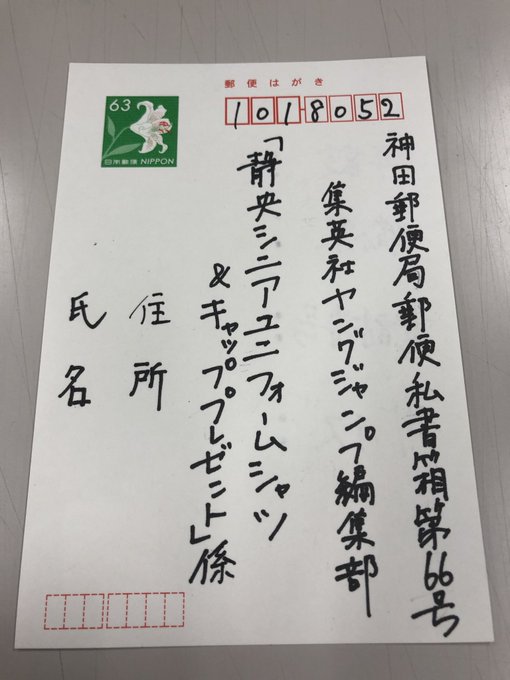 63
日本郵便 NIPPON
郵便はがき
1018052
神田郵便局郵便私書箱第66号
集英社ヤングジャンプ編集部
「静央シニアユニフォームシャツ
&キャッププレゼント」係
住所
氏名